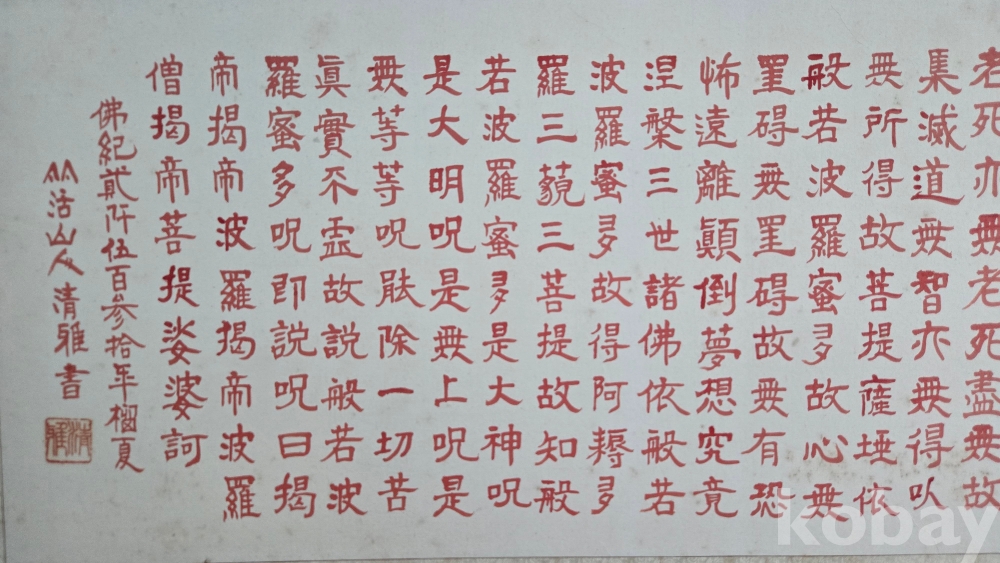 老死亦無老死盡無故
集滅道無智亦無得以
無所得故菩提薩埵依
般若波羅蜜多故心無
罣碍無罣碍故無有恐
怖遠離顚倒夢想究竟
涅槃三世諸佛依般若
波羅蜜多故得阿耨多
羅三藐三菩提故知般
若波羅蜜多是大神呪
是大明呪是無上呪是
無等等呪能除一切苦
眞實不虛故說般若波
羅蜜多呪卽說呪曰揭
帝揭帝波羅揭帝波羅
僧揭帝菩提娑婆訶
佛紀貳阡伍百參拾年榴夏
活山人清雅書
清雅
kobay